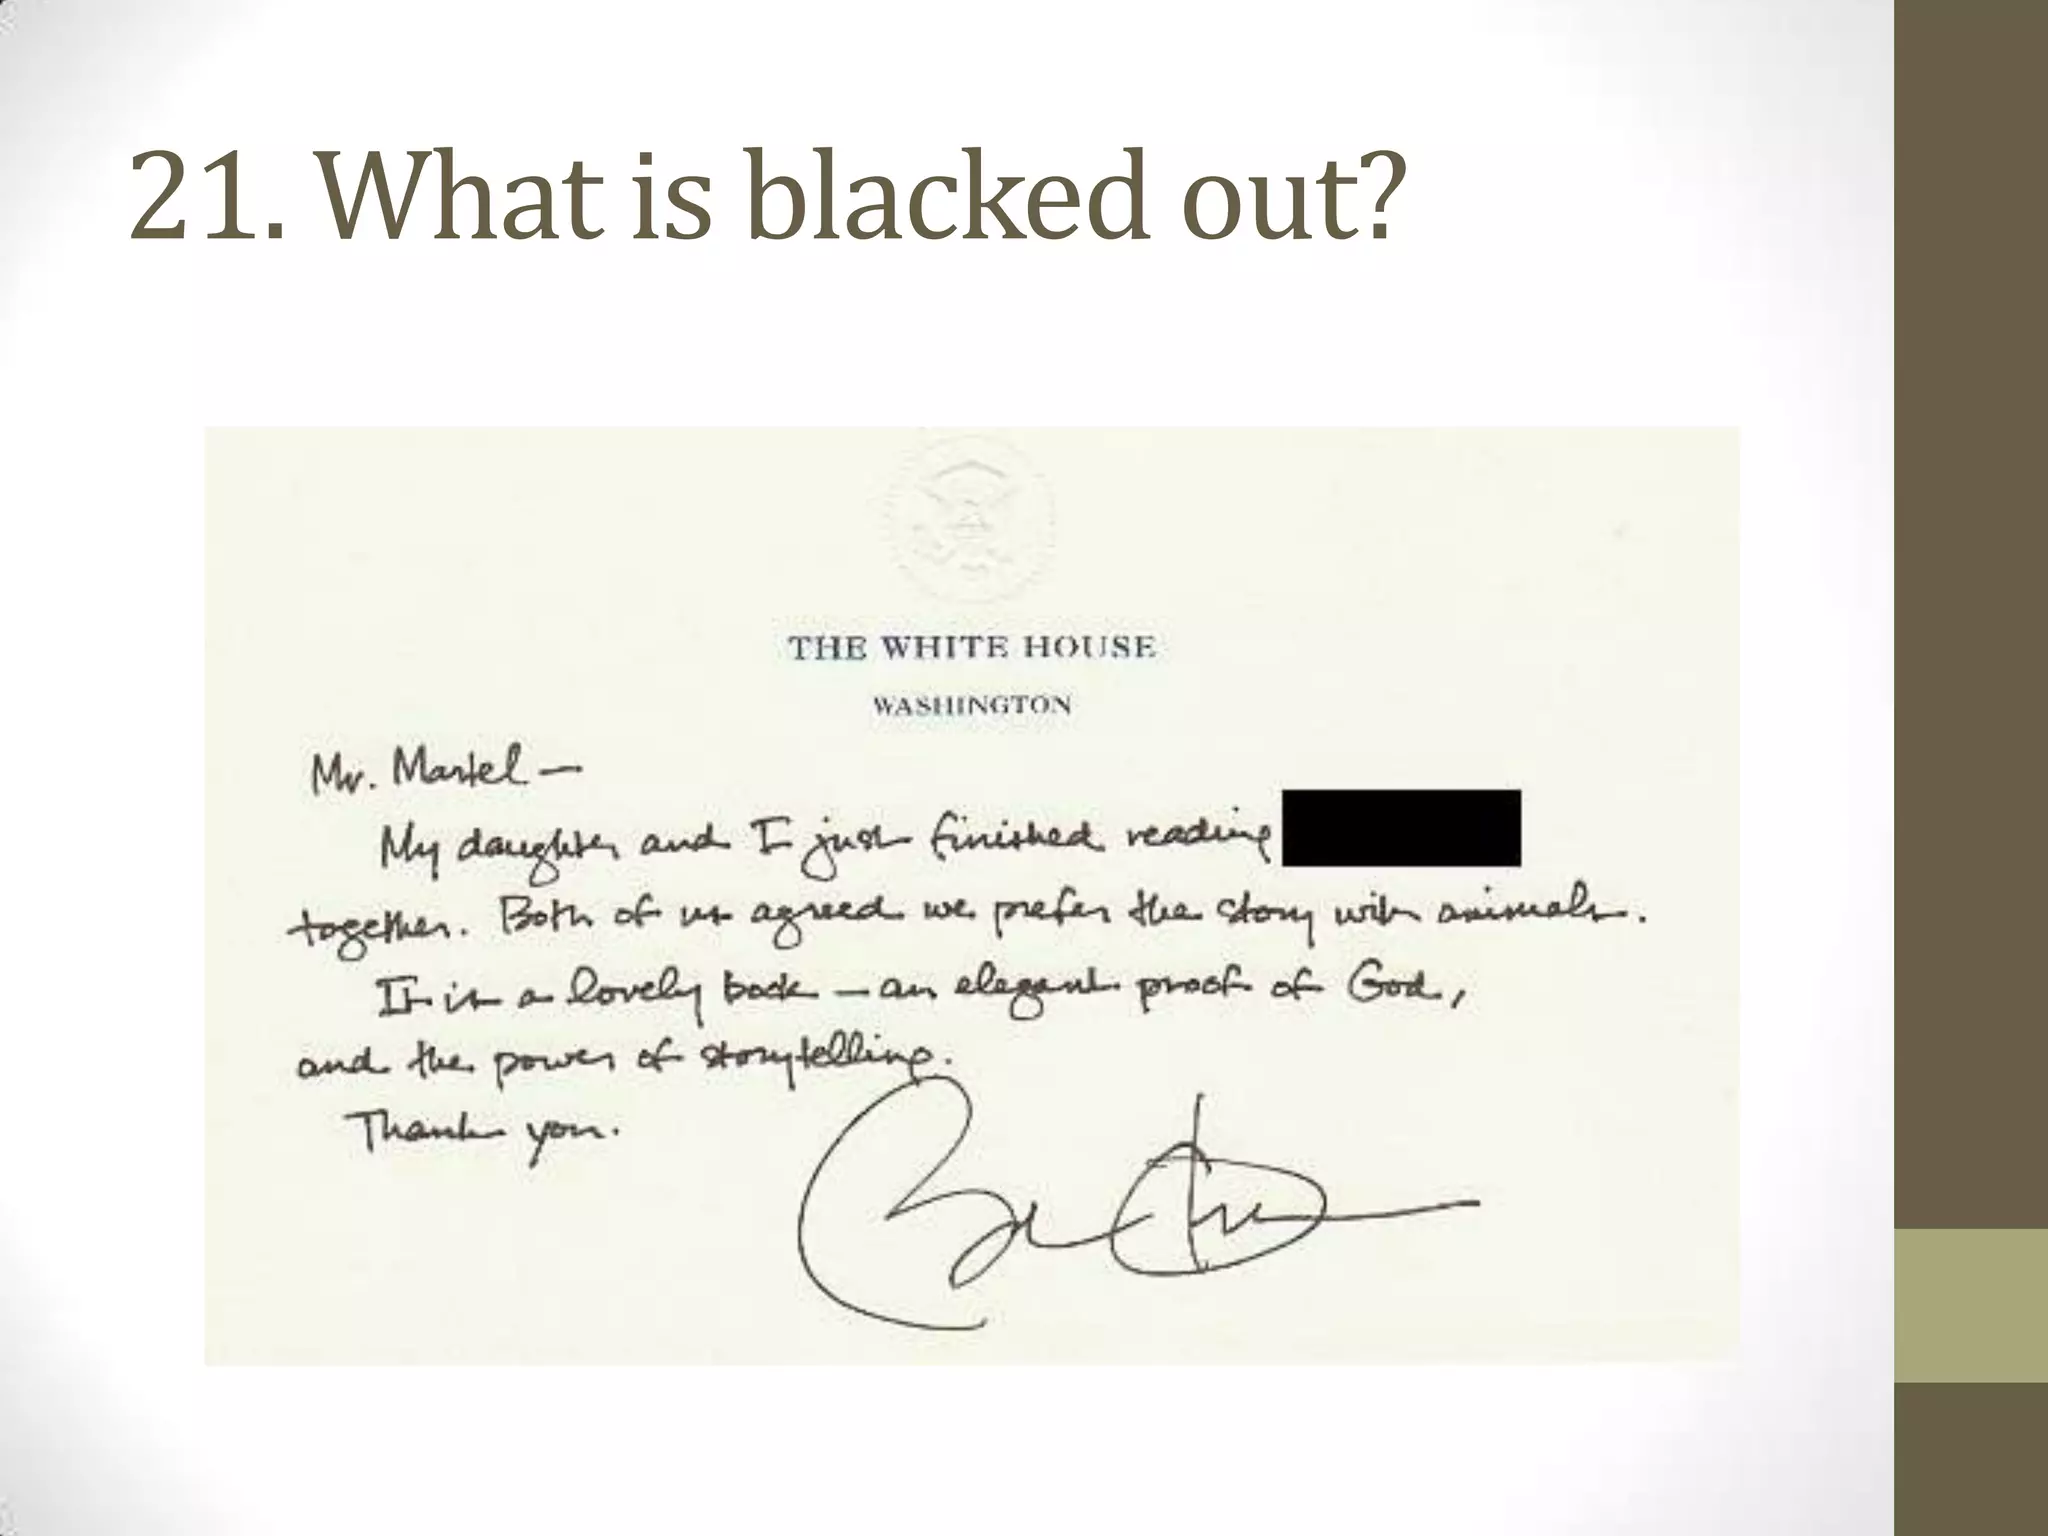 21. What is blacked out?
THE WHITE HOUSE
WASHINGTON
Mr. Martel —
My daughter and I just finished reading
together. Both of us agreed we prefer the story with animals.
It is a lovely book — an elegant proof of God,
and the power of storytelling.
Thank you.